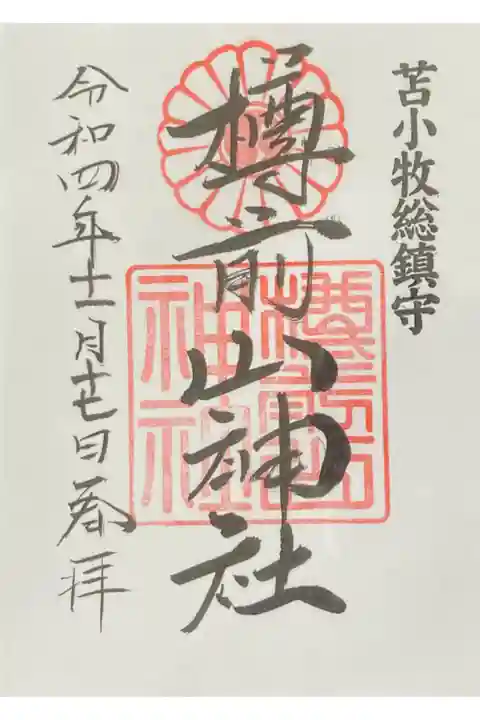 苫小牧総鎮守
樽前山神社
樽前山神社
令和四年十一月十七日奉拝